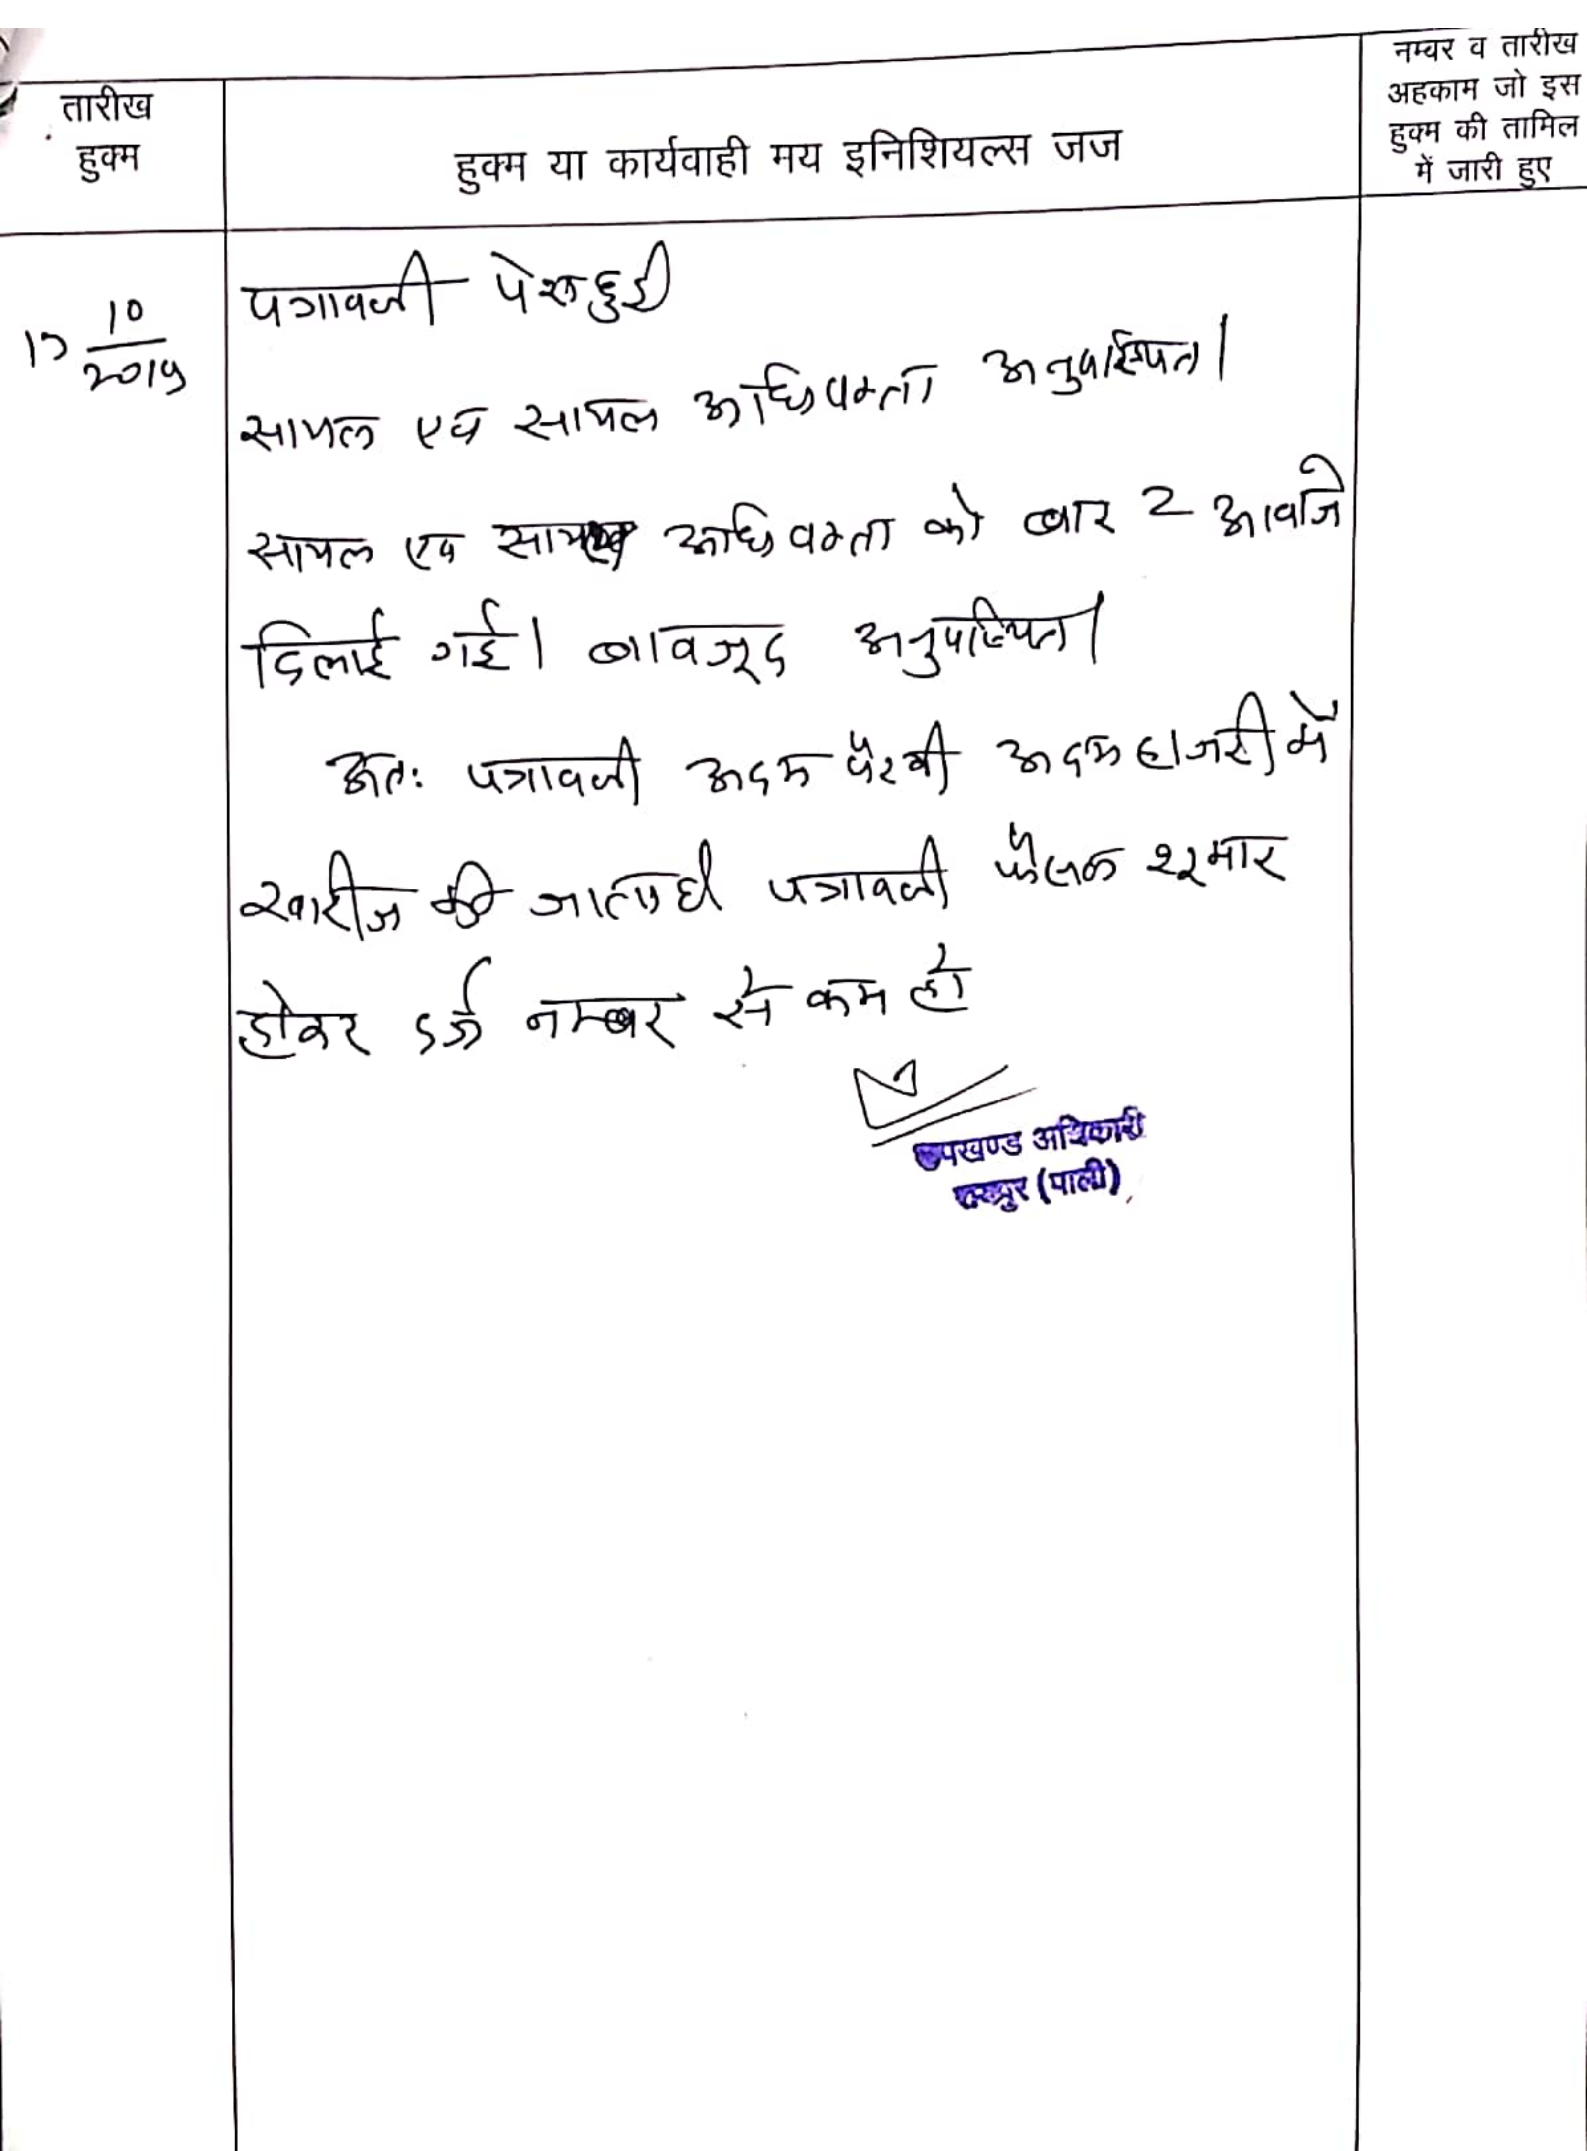 तारीख
हुक्म
हुक्म या कार्यवाही मय इनिशियल्स जज
नम्बर व तारीख
अहकाम जो इस
हुक्म की तामिल
में जारी हुए
10
2019
पत्रावली पेश हुई
सायल एवं सायल अधिवक्ता अनुपस्थित।
सायल एवं सायल अधिवक्ता को बार 2 आवाजे
दिलाई गई। बावजूद अनुपस्थित।
अतः पत्रावली अदम पैरवी अदम हाजरी में
खारीज की जाती है पत्रावली फैसल शूमार
होकर दर्ज नम्बर से कम हो
उपखण्ड अधिकारी
(पाली)